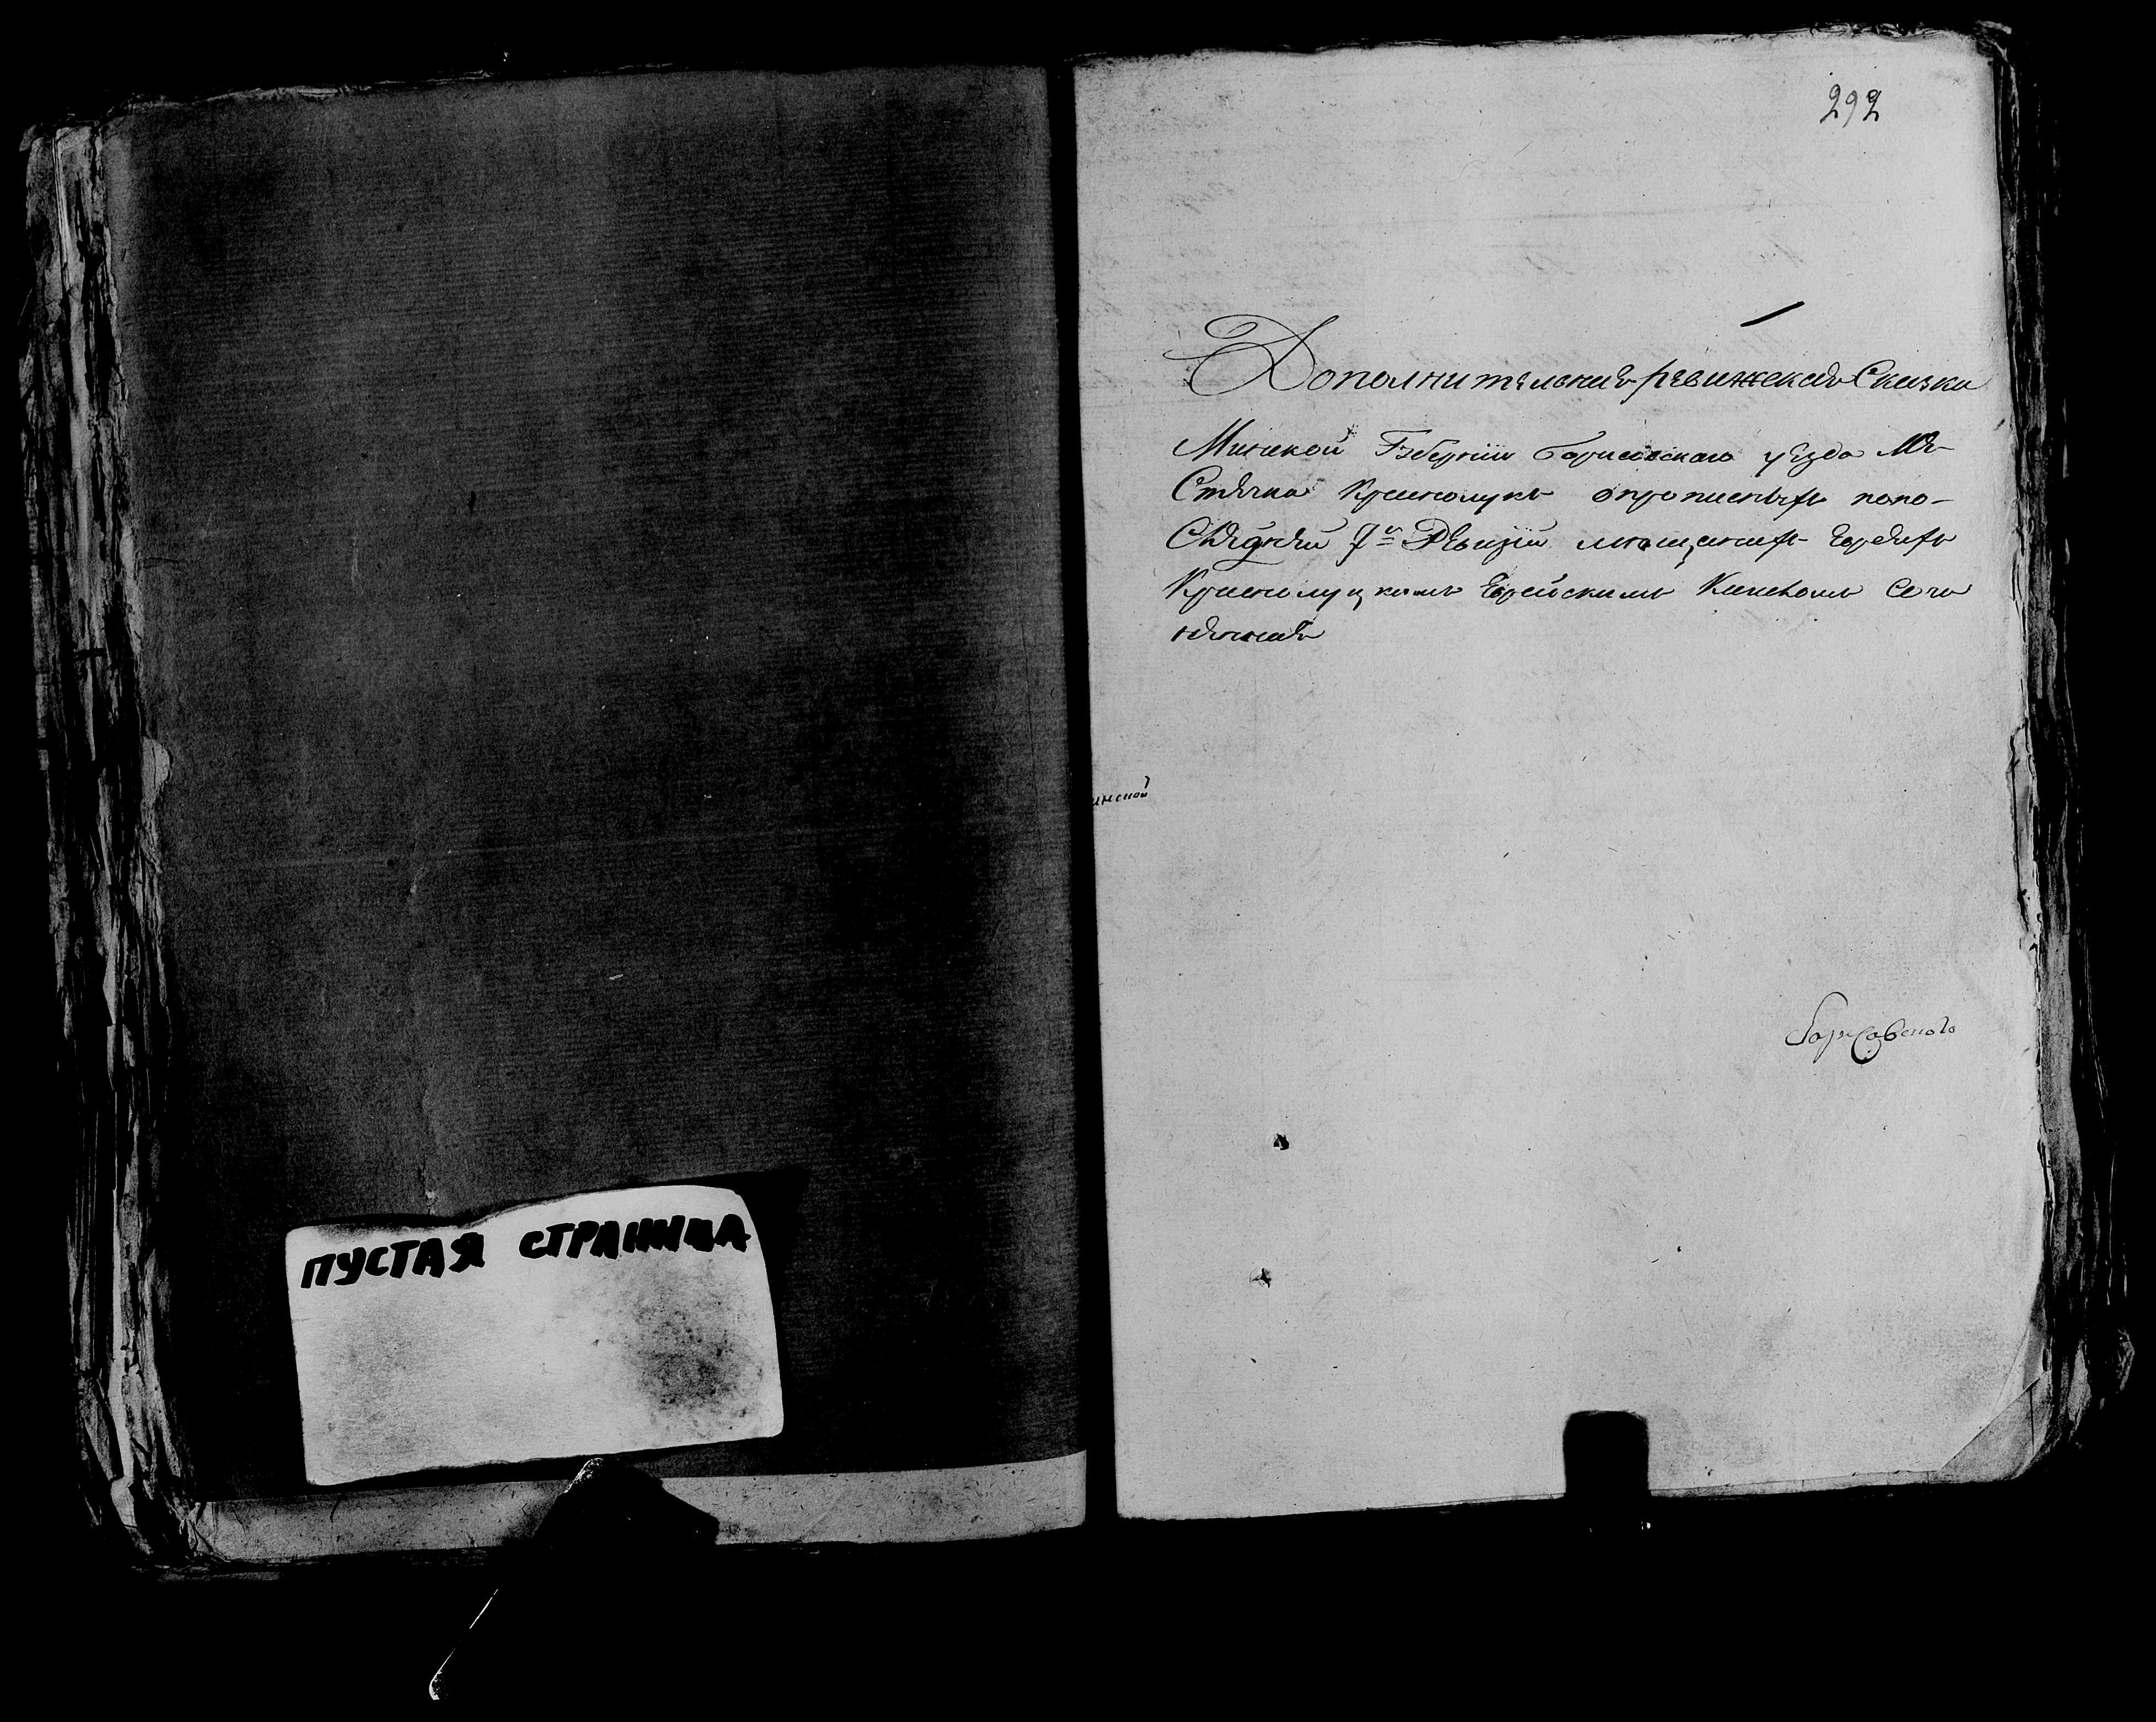 ПУСТАЯ СТРАНИЦА
292
Дополнительная ревижская Сказка
Минской Губерніи Борисовскаго уезда Мѣ-
Стечка Краснолукъ опрописныхъ попо-
Слѣдней 7й Ревизіи мещанахъ Евреяхъ
Краснолуцкимъ Еврейскимъ Кагаломъ Сочи
ненная
инской
Борисовского